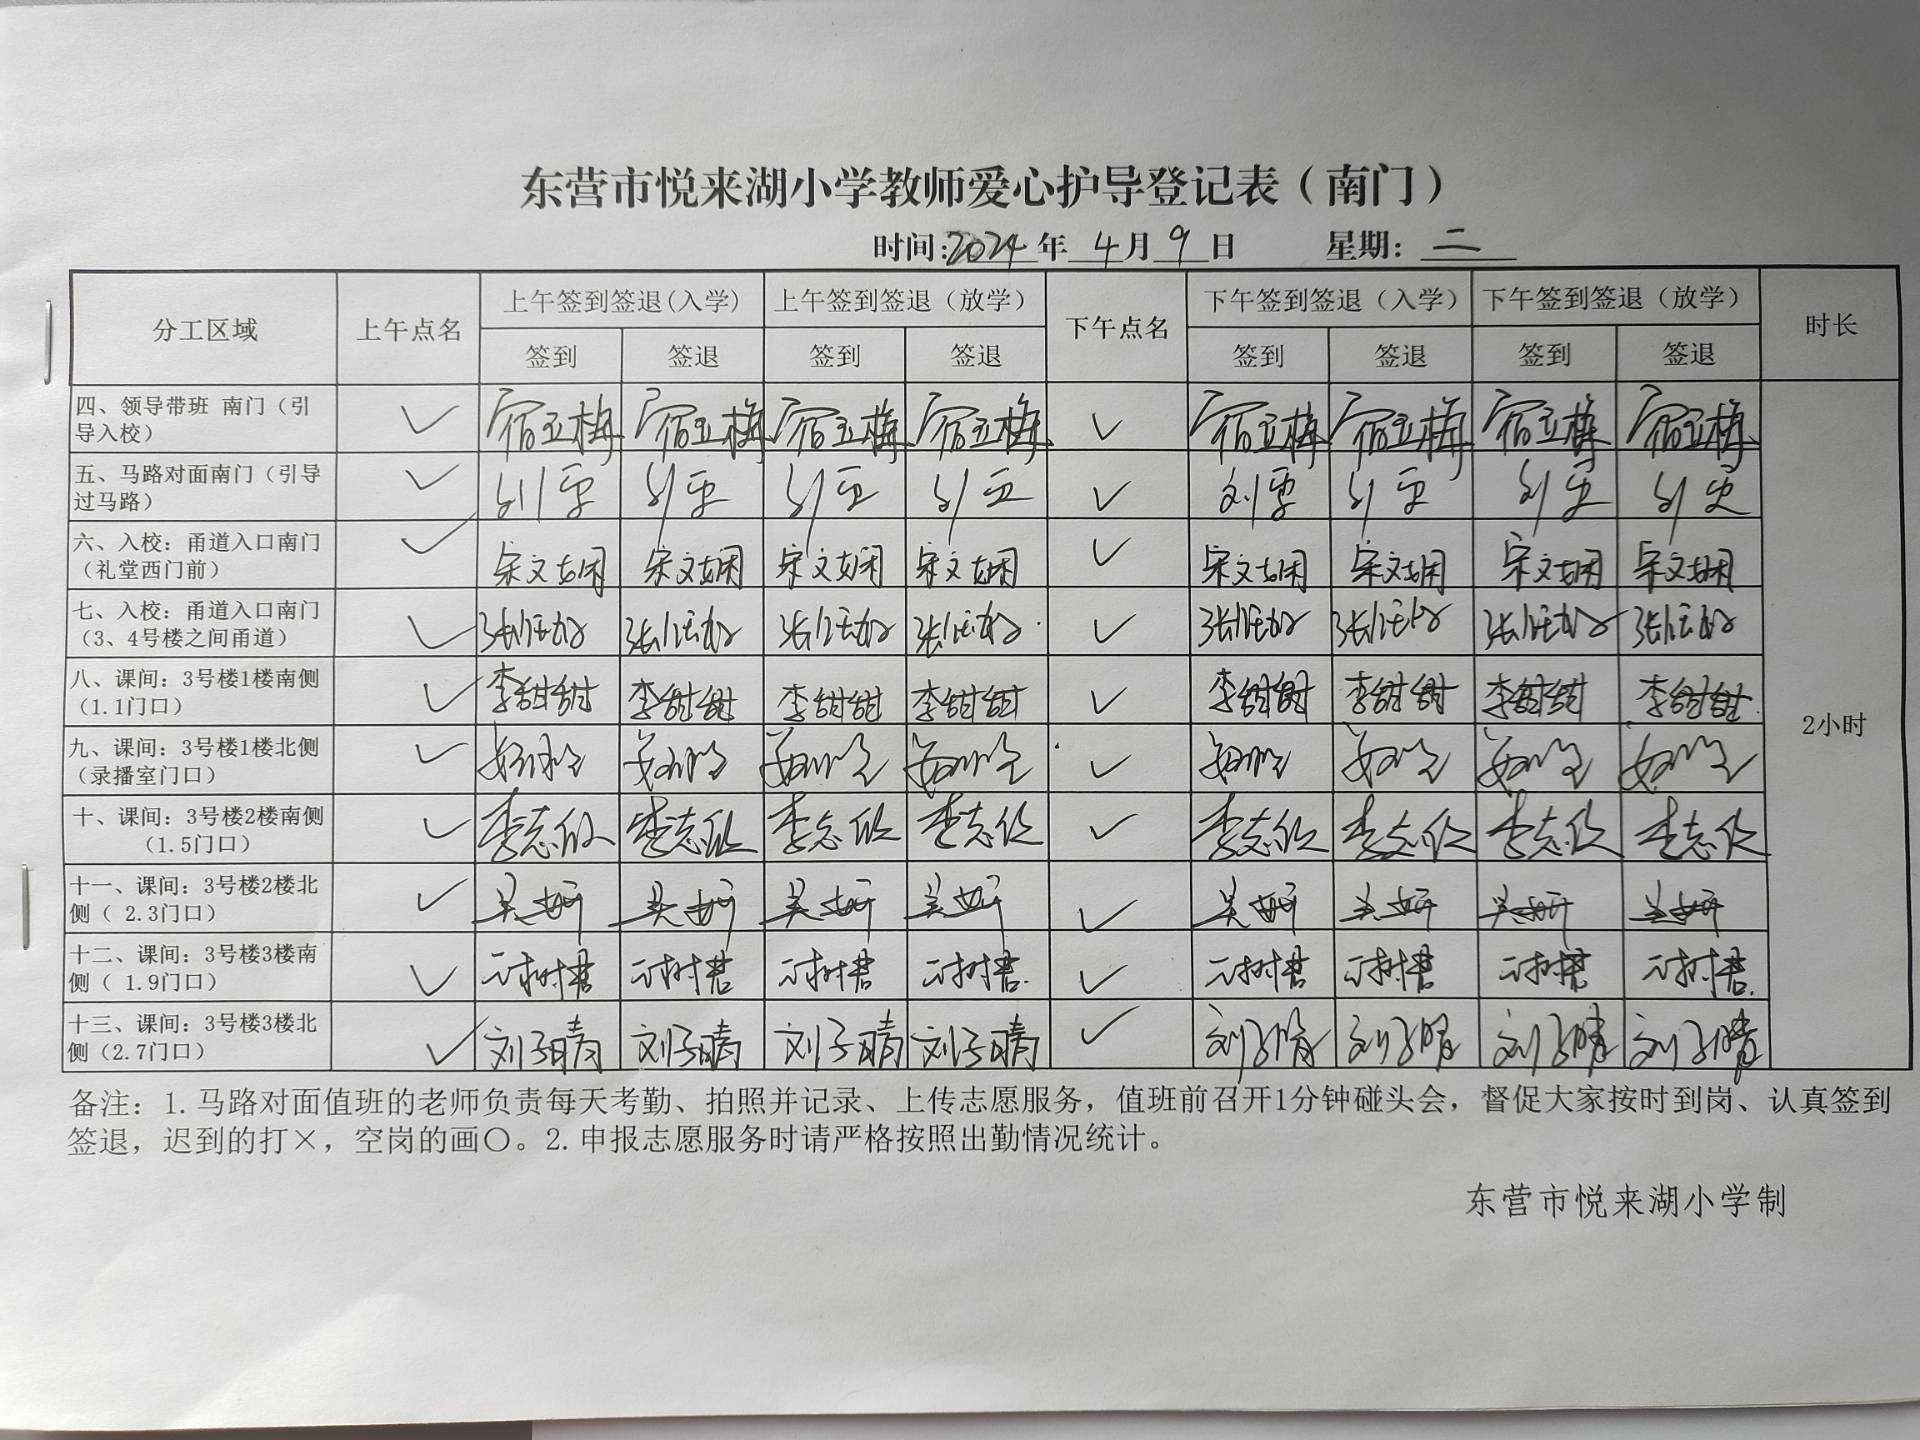 东营市悦来湖小学教师爱心护导登记表（南门）
时间:2024年 4月 9日 星期: 二
分工区域 上午点名 上午签到签退(入学) 上午签到签退（放学） 下午点名 下午签到签退（入学） 下午签到签退（放学） 时长
签到 签退 签到 签退 签到 签退 签到 签退
四、领导带班 南门（引
导入校） ✓ 宿立梅 宿立梅 宿立梅 宿立梅 ✓ 宿立梅 宿立梅 宿立梅 宿立梅
五、马路对面南门（引导
过马路） ✓ 刘 刘 刘 刘 ✓ 刘 刘 刘 刘
六、入校: 甬道入口南门
（礼堂西门前） ✓ 宋文娴 宋文娴 宋文娴 宋文娴 ✓ 宋文娴 宋文娴 宋文娴 宋文娴
七、入校: 甬道入口南门
（3、4号楼之间甬道） ✓ 张 张 张 张 ✓ 张 张 张 张
八、课间: 3号楼1楼南侧
（1.1门口） ✓ 李甜甜 李甜甜 李甜甜 李甜甜 ✓ 李甜甜 李甜甜 李甜甜 李甜甜
九、课间: 3号楼1楼北侧
（录播室门口） ✓ ✓
2小时
十、课间: 3号楼2楼南侧
（1.5门口） ✓ 李志欣 李志欣 李志欣 李志欣 ✓ 李志欣 李志欣 李志欣 李志欣
十一、课间: 3号楼2楼北
侧（ 2.3门口） ✓ 吴妍 吴妍 吴妍 吴妍 ✓ 吴妍 吴妍 吴妍 吴妍
十二、课间: 3号楼3楼南
侧（ 1.9门口） ✓ ✓
十三、课间: 3号楼3楼北
侧（2.7门口） ✓ 刘子晴 刘子晴 刘子晴 刘子晴 ✓ 刘子晴 刘子晴 刘子晴 刘子晴
备注: 1.马路对面值班的老师负责每天考勤、拍照并记录、上传志愿服务，值班前召开1分钟碰头会，督促大家按时到岗、认真签到
签退，迟到的打×，空岗的画〇。2.申报志愿服务时请严格按照出勤情况统计。
东营市悦来湖小学制